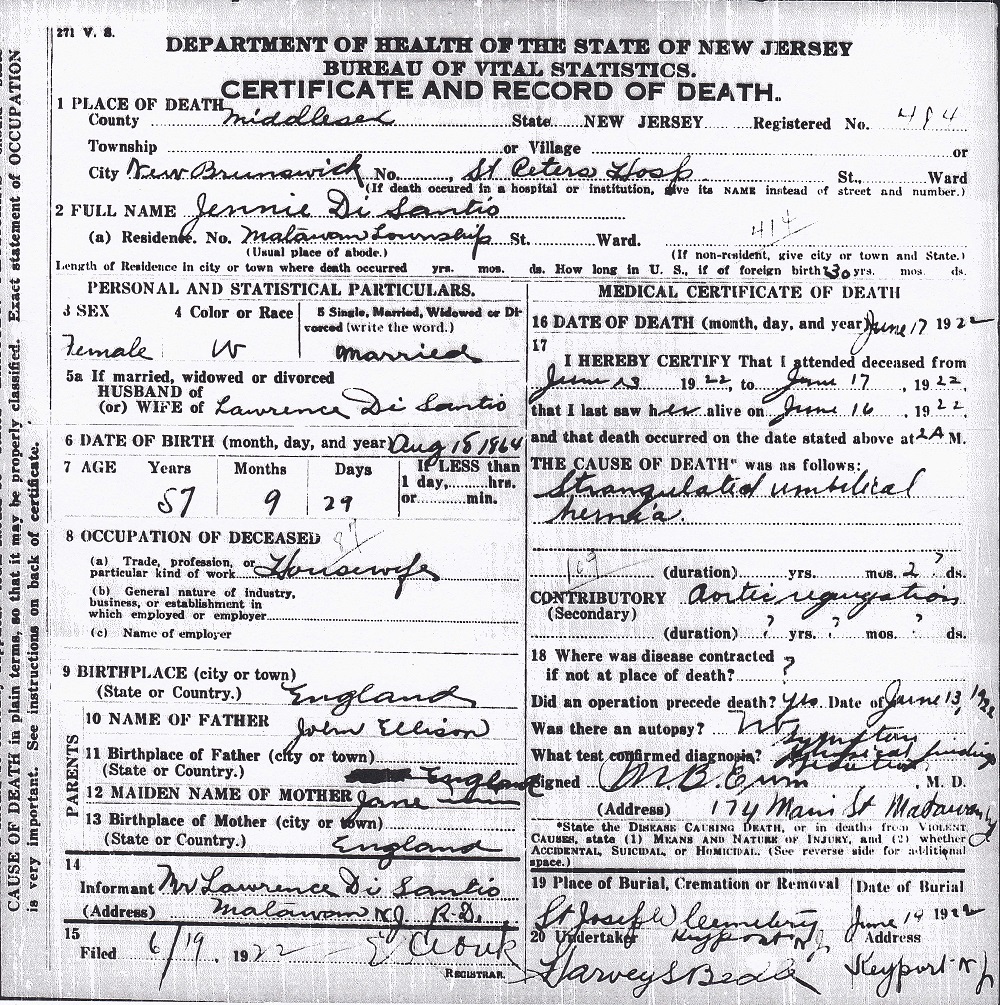 271 V. S.
DEPARTMENT OF HEALTH OF THE STATE OF NEW JERSEY
BUREAU OF VITAL STATISTICS.
CERTIFICATE AND RECORD OF DEATH.
1 PLACE OF DEATH
County Middlesex State NEW JERSEY Registered No. 484
Township or Village or
City New Brunswick No. , St Peters Hosp St., Ward
(If death occured in a hospital or institution, give its NAME instead of street and number.)
2 FULL NAME Jennie Di Santis
414
(a) Residence. No. Matawan Township St. Ward.
(Usual place of abode.) (If non-resident, give city or town and State.)
Length of Residence in city or town where death occurred yrs. mos. ds. How long in U. S., if of foreign birth? 30 yrs. mos. ds.
PERSONAL AND STATISTICAL PARTICULARS.
3 SEX 4 Color or Race 5 Single, Married, Widowed or Di-
vorced (write the word.)
Female W Married
5a If married, widowed or divorced
HUSBAND of
(or) WIFE of Lawrence Di Santis
6 DATE OF BIRTH (month, day, and year) Aug 18 1864
7 AGE Years Months Days If LESS than
1 day, hrs.
or min.
57 9 29
8 OCCUPATION OF DECEASED
(a) Trade, profession, or
particular kind of work Housewife
(b) General nature of industry,
business, or establishment in
which employed or employer
(c) Name of employer
9 BIRTHPLACE (city or town)
(State or Country.) England
PARENTS
10 NAME OF FATHER John Ellison
11 Birthplace of Father (city or town)
(State or Country.) England
12 MAIDEN NAME OF MOTHER Jane
13 Birthplace of Mother (city or town)
(State or Country.) England
14
Informant Mr Lawrence Di Santis
(Address) Matawan N.J. R.D.
15
Filed 6/19 1922
REGISTRAR.
MEDICAL CERTIFICATE OF DEATH
16 DATE OF DEATH (month, day, and year) June 17 1922
17
I HEREBY CERTIFY That I attended deceased from
June 13 1922, to June 17, 1922,
that I last saw her alive on June 16, 1922,
and that death occurred on the date stated above at 2A M.
THE CAUSE OF DEATH* was as follows:
Strangulated umbilical
hernia.
(duration) yrs. mos. 2 ? ds.
CONTRIBUTORY Aortic regurgitation
(Secondary)
(duration) ? yrs. ? mos. ? ds.
18 Where was disease contracted
if not at place of death? ?
Did an operation precede death? Yes. Date of June 13, 1922
Was there an autopsy? No
What test confirmed diagnosis? Symptoms Physical findings
Signed M. D.
(Address) 174 Main St Matawan NJ
*State the DISEASE CAUSING DEATH, or in deaths from VIOLENT
CAUSES, state (1) MEANS AND NATURE OF INJURY, and (2) whether
ACCIDENTAL, SUICIDAL, OR HOMICIDAL. (See reverse side for additional
space.)
19 Place of Burial, Cremation or Removal Date of Burial
St Josephs Cemetery June 19 1922
Keyport N J
20 Undertaker Address
Harvey S Bedle Keyport N J
CAUSE OF DEATH in plain terms, so that it may be properly classified. Exact statement of OCCUPATION
is very important. See instructions on back of certificate.